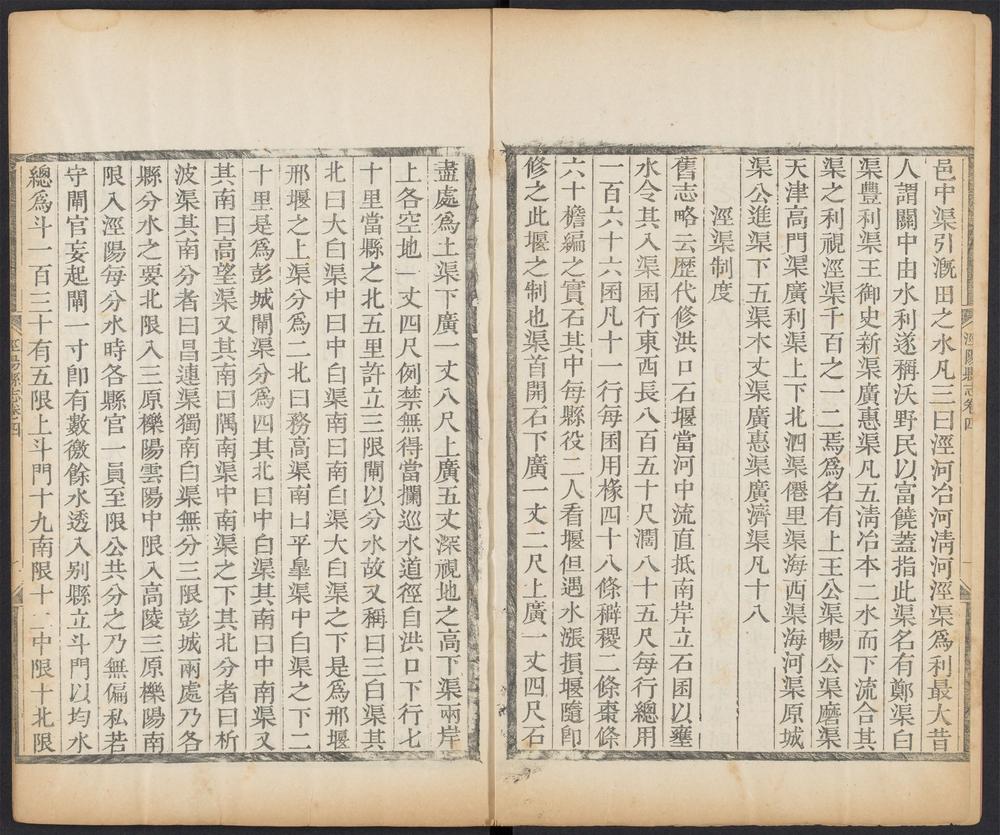 邑中渠引漑田之水凡三曰涇河冶河淸河涇渠爲利最大昔
人謂關中由水利遂稱沃野民以富饒蓋指此渠名有鄭渠白
渠豐利渠王御史新渠廣惠渠凡五淸冶本二水而下流合其
渠之利視涇渠千百之一二焉爲名有上王公渠暢公渠磨渠
天津高門渠廣利渠上下北泗渠僊里渠海西渠海河渠原城
渠公進渠下五渠木丈渠廣惠渠廣濟渠凡十八
涇渠制度
舊志略云歷代修洪口石堰當河中流直抵南岸立石囷以壅
水令其入渠囷行東西長八百五十尺濶八十五尺每行總用
一百六十六囷凡十一行每囷用椽四十八條檳稷二條棗條
六十檐編之實石其中每縣役二人看堰但遇水漲損堰隨卽
修之此堰之制也渠首開石下廣一丈二尺上廣一丈四尺石
盡處爲土渠下廣一丈八尺上廣五丈深視地之高下渠兩岸
上各空地一丈四尺例禁無得當攔巡水道徑自洪口下行七
十里當縣之北五里許立三限閘以分水故又稱曰三白渠其
北曰大白渠中曰中白渠南曰南白渠大白渠之下是爲邢堰
邢堰之上渠分爲二北曰務高渠南曰平皐渠中白渠之下二
十里是爲彭城閘渠分爲四其北曰中白渠其南曰中南渠又
其南曰高望渠又其南曰隅南渠中南渠之下其北分者曰析
波渠其南分者曰昌連渠獨南白渠無分三限彭城兩處乃各
縣分水之要北限入三原櫟陽雲陽中限入高陵三原櫟陽南
限入涇陽每分水時各縣官一員至限公共分之乃無偏私若
守閘官妄起閘一寸卽有數徼餘水透入别縣立斗門以均水
總爲斗一百三十有五限上斗門十九南限十二中限十北限
涇陽縣志卷四
涇陽縣志卷四